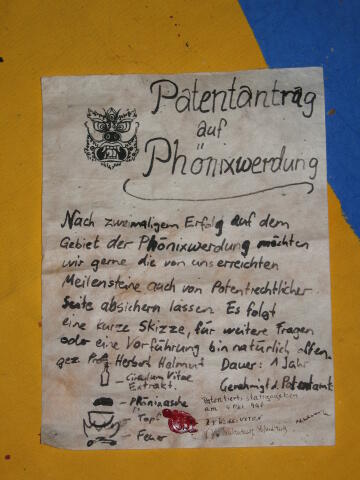 Patentantrag
auf
Phönixwerdung
Nach zweimaligem Erfolg auf dem
Gebiet der Phönixwerdung möchten
wir gerne die von uns erreichten
Meilensteine auch von Patentrechtlicher
Seite absichern lassen. Es folgt
eine kurze Skizze, für weitere Fragen
oder eine Vorführung bin natürlich offen.
gez Prof Herbert Halmut Dauer: 1 Jahr
Vitae Genehmigt d. Patentamt
Extrakt.
Phönixasche Patentierts stattgegeben
Topf am
Feuer